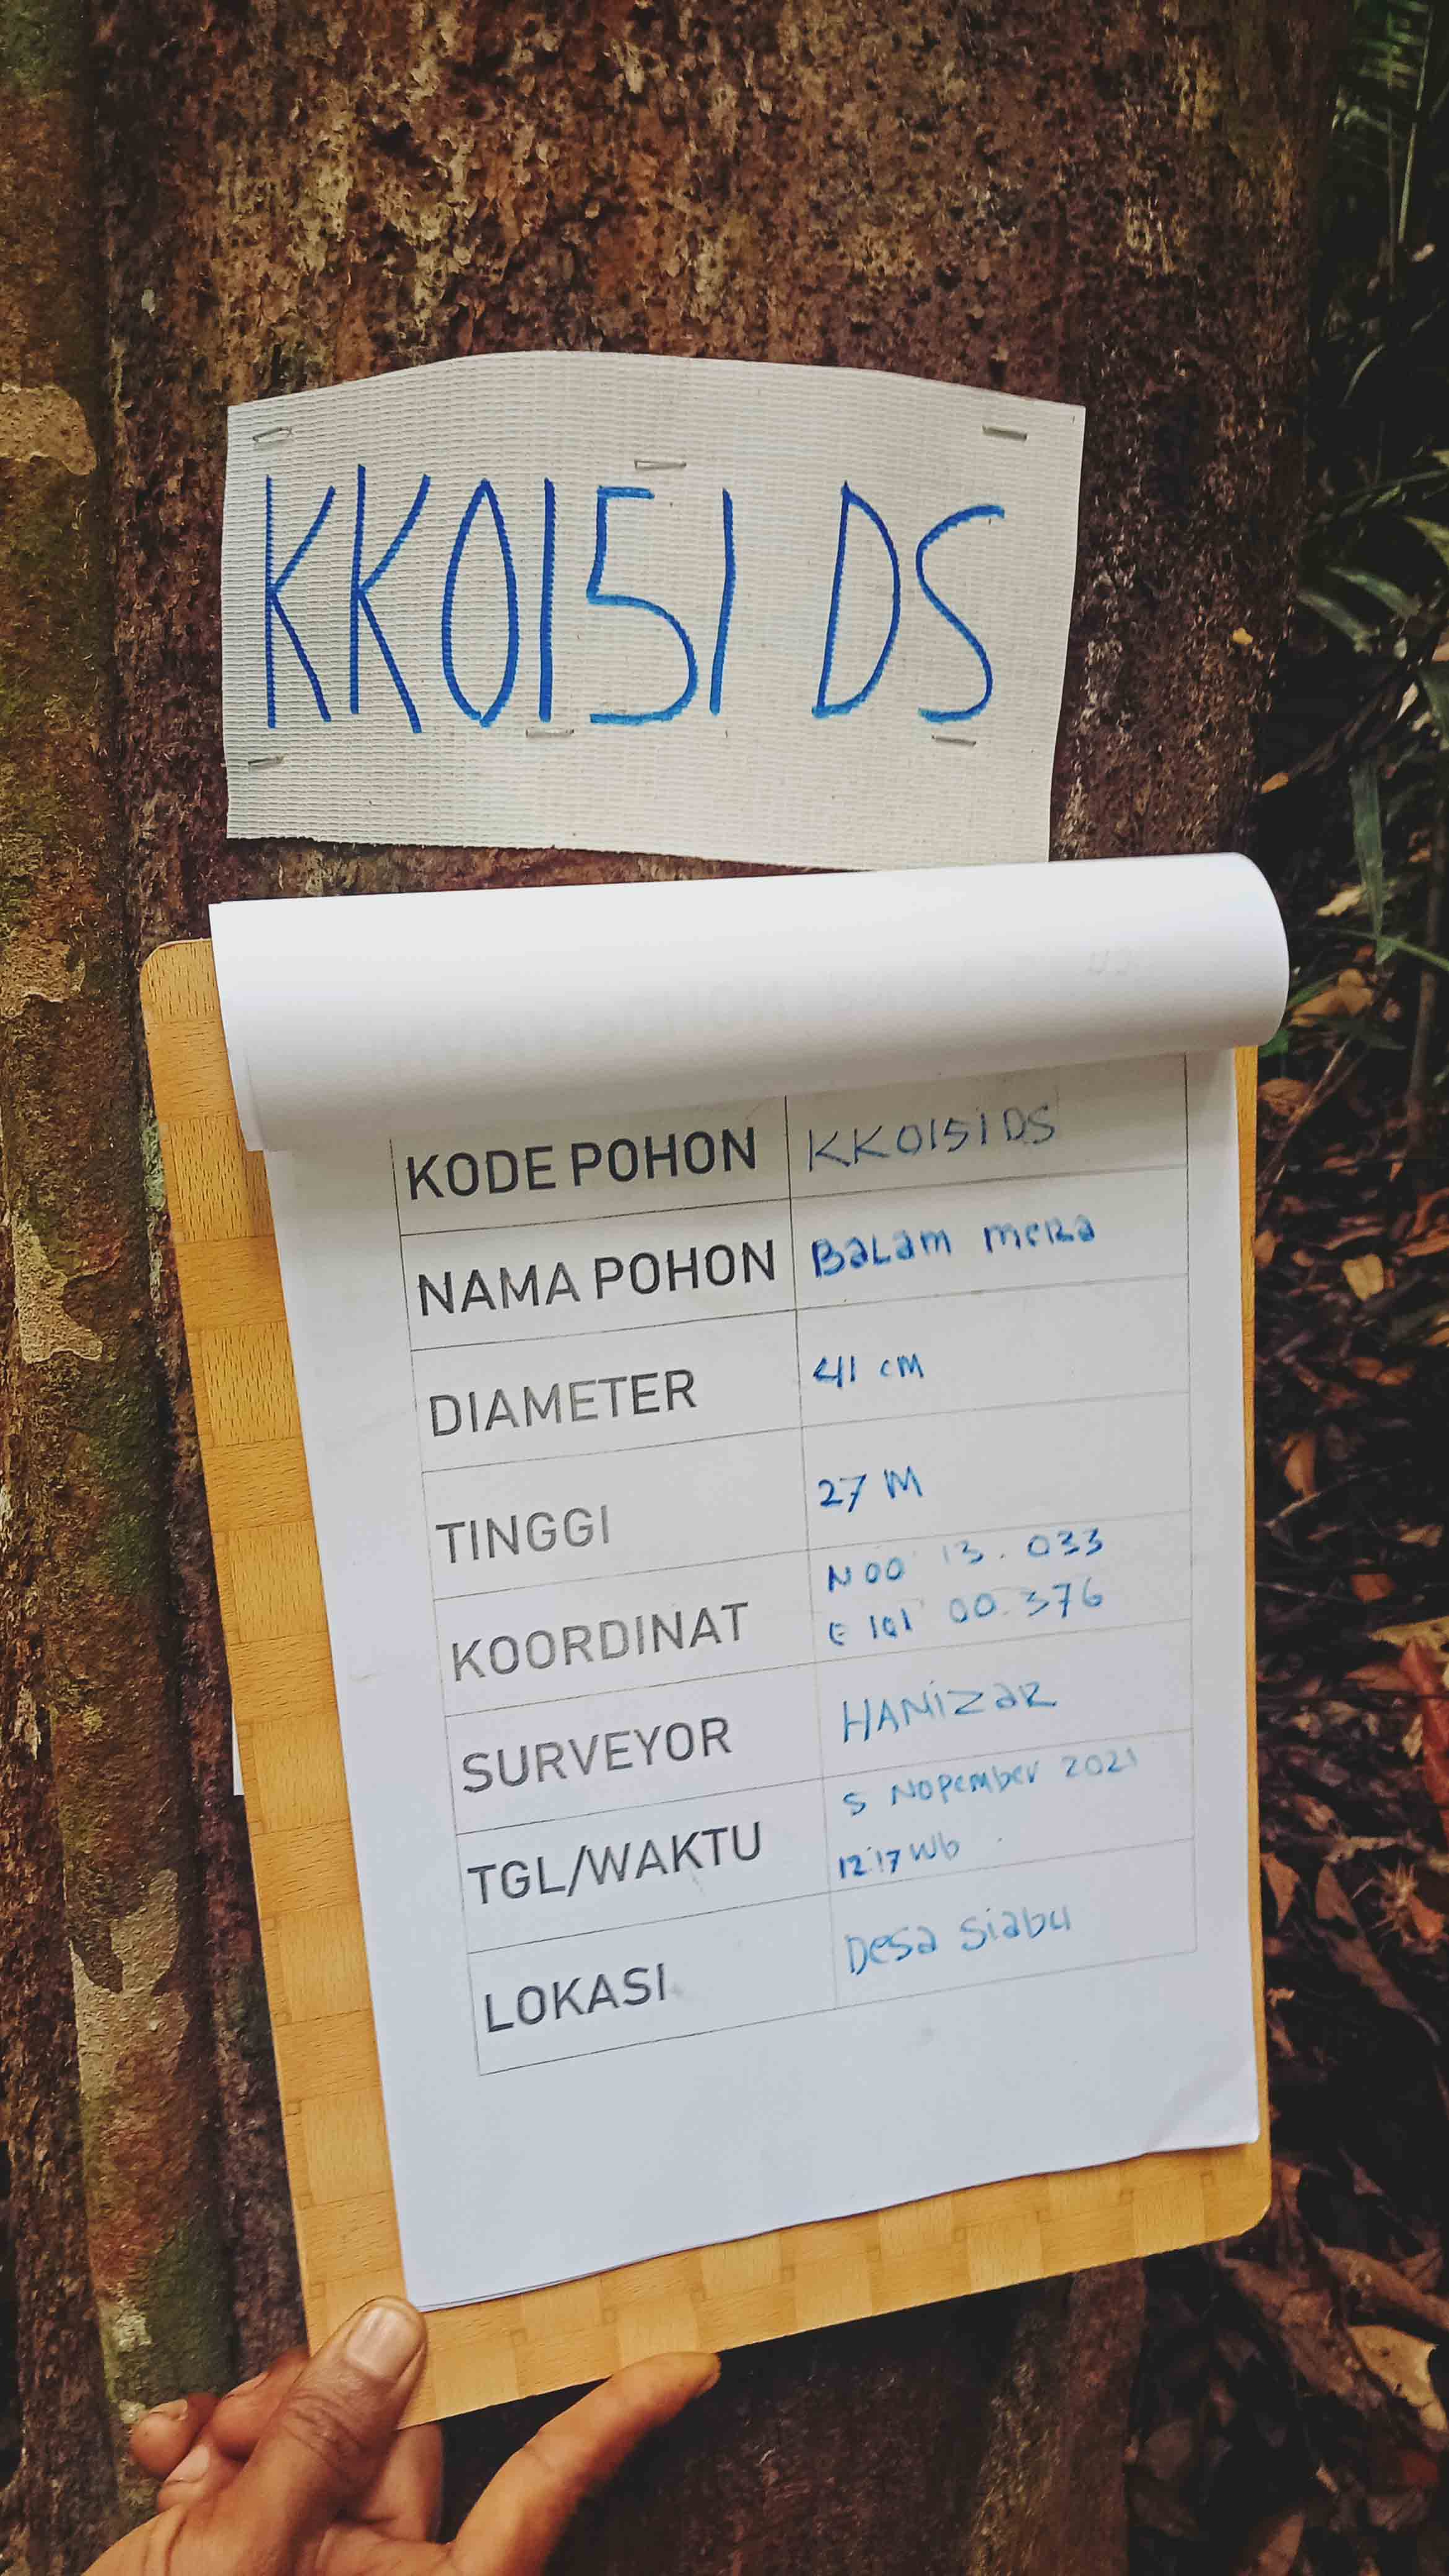 KK0151 DS
KODE POHON KK0151DS
NAMA POHON BaLam meRa
DIAMETER 41 cM
TINGGI 27 M
KOORDINAT N 00 13. 033
E 101 00.376
SURVEYOR HANiZaR
TGL/WAKTU 5 NoPember 2021
12:17 Wb
LOKASI Desa Siabu